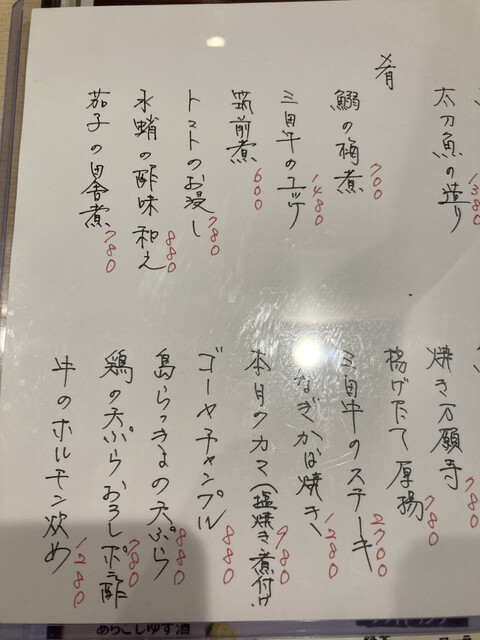 太刀魚の造り 1380
肴
鰯の梅煮 700
三田牛のユッケ 1480
筑前煮 600
トマトのお浸し 780
水蛸の酢味和え 880
茄子の田舎煮 780
焼き万願寺 780
揚げたて厚揚 780
三田牛のステーキ 2700
なぎかば焼き 1280
本日のカマ(塩焼き、煮付け) 980
ゴーヤチャンプル 880
島らっきょの天ぷら 880
鶏の天ぷらおろしポン酢 880
牛のホルモン炒め 1280
めちこしゆず酒